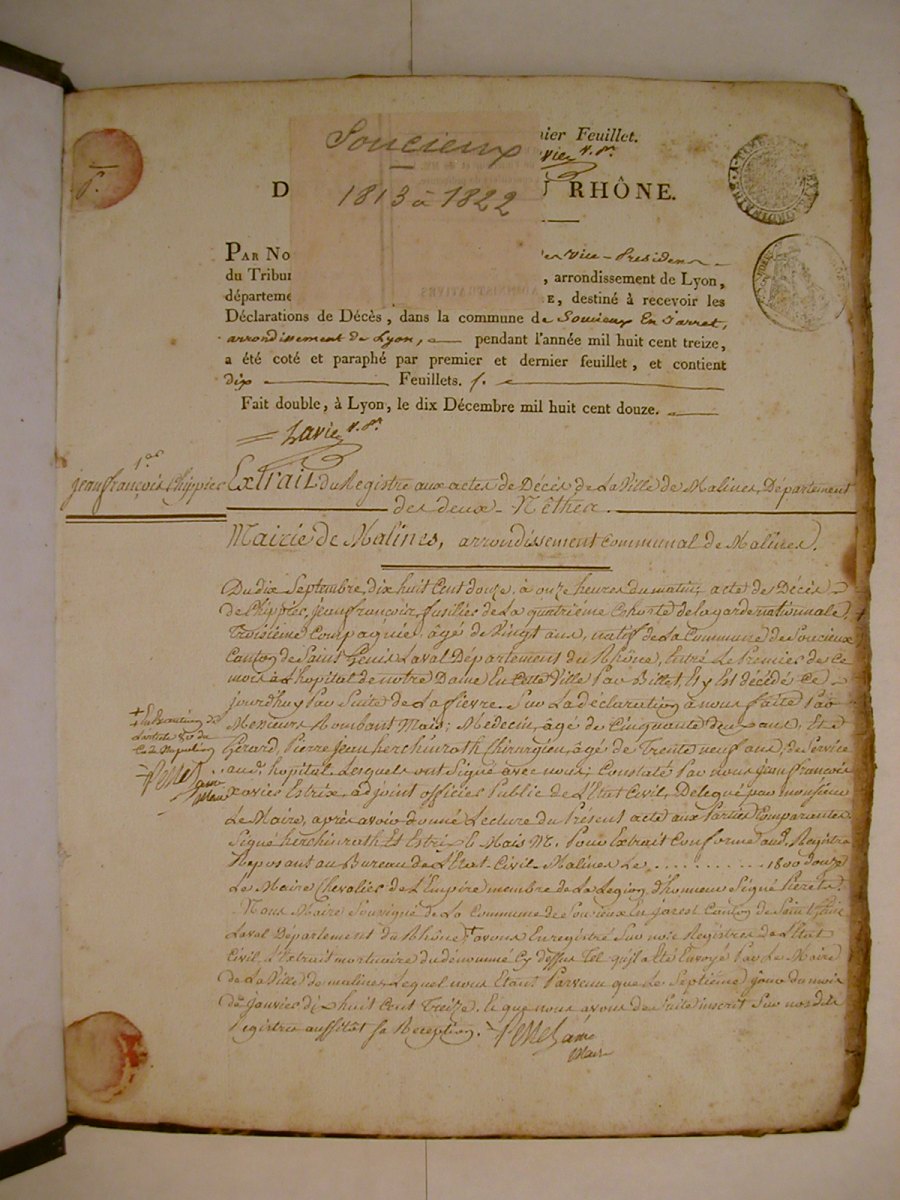 Soucieux
1813 à 1822
nier Feuillet.
RHÔNE.
PAR NO Vice-Président
du Tribun , arrondissement de Lyon,
départeme E, destiné à recevoir les
Déclarations de Décès, dans la commune de Soucieux En Jarret,
arrondissement de Lyon, pendant l'année mil huit cent treize,
a été coté et paraphé par premier et dernier feuillet, et contient
dix Feuillets.
Fait double, à Lyon, le dix Décembre mil huit cent douze.
Lavie v. pr.
1er
jean françois Chippier
Extrait du Registre aux actes de Décès de La Ville de Malines, Département
des deux-Nêthes.
Mairie de Malines, arrondissement Communal de Malines.
Du dix Septembre, dix huit Cent douze, à onze heures du matin, acte de Décès
de jean françois, fusilier de La quatrième Cohorte de la garde nationnale,
Troisième Compagnie, âgé de Vingt ans, natif de La Commune de Soucieux
Canton de Saint Genis Laval Département du Rhône, Entré Le Premier de Ce
mois à L'hopital de notre Dame En Cette Ville Par Billet, Et y Est décédé Ce
jourd'huy Par Suite de La fievre. Sur La déclaration à nous faite Par
Messieurs Rombaut Mais, Medecin, âgé de Cinquante deux ans, Et
Gérard, Pierre jean herchinroth Chirurgien, âgé de Trente neuf ans, de Service
aud. hopital Lesquels ont Signé avec nous; Constaté Par nous jean françois
xavier Estrix, adjoint officier Public de L'Etat Civil, Delegué par monsieur
Le Maire, après avoir donné Lecture du Présent acte aux Parties Comparantes.
Signé herchinroth Et Estrix Mais M. Pour Extrait Conforme aud. Registre
Reposant au Bureau de L'Etat-Civil-Malines Le . . . . . . . . . . 1800 douze
Le Maire Chevalier de L'Empire membre de La Legion d'honneur Signé Pierets.
Nous Maire Soussigné de La Commune de Soucieux En jarest Canton de Saint Genis
Laval Département du Rhône + avons Enregistré Sur nos Registres de L'Etat
Civil L'Extrait mortuaire du dénommé Cy dessus Tel qu'il a Eté Envoyé Par Le Maire
de La Ville de malines Lequel nous Etant Parvenu que Le Septième jour du mois
de janvier dix huit Cent Treize, Ce que nous avons de Suite inscrit Sur nos dits
Registres aussitôt sa Reception.
Maire
+ En Execution de
L'article 80 du
Code Napoleon
Maire